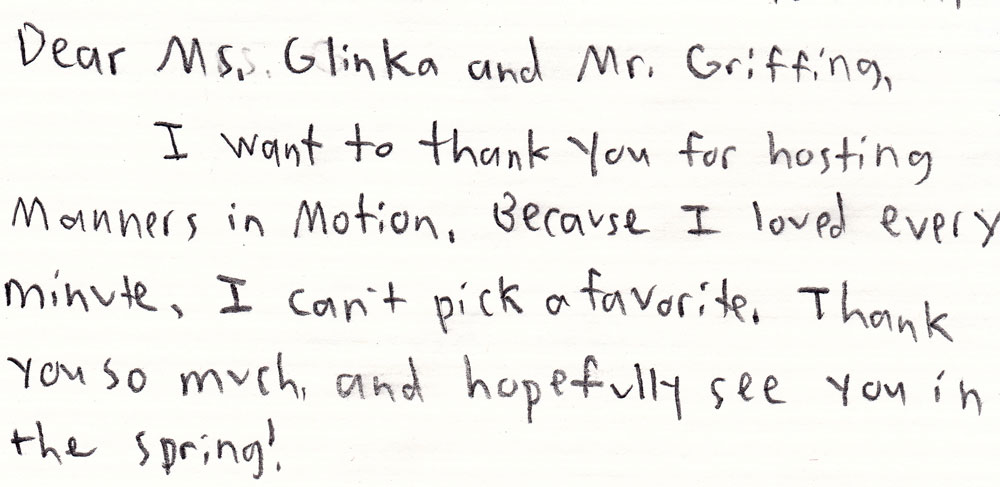 Dear Ms. Glinka and Mr. Griffing,
I want to thank you for hosting
Manners in Motion. Because I loved every
minute, I can't pick a favorite. Thank
you so much, and hopefully see you in
the spring!